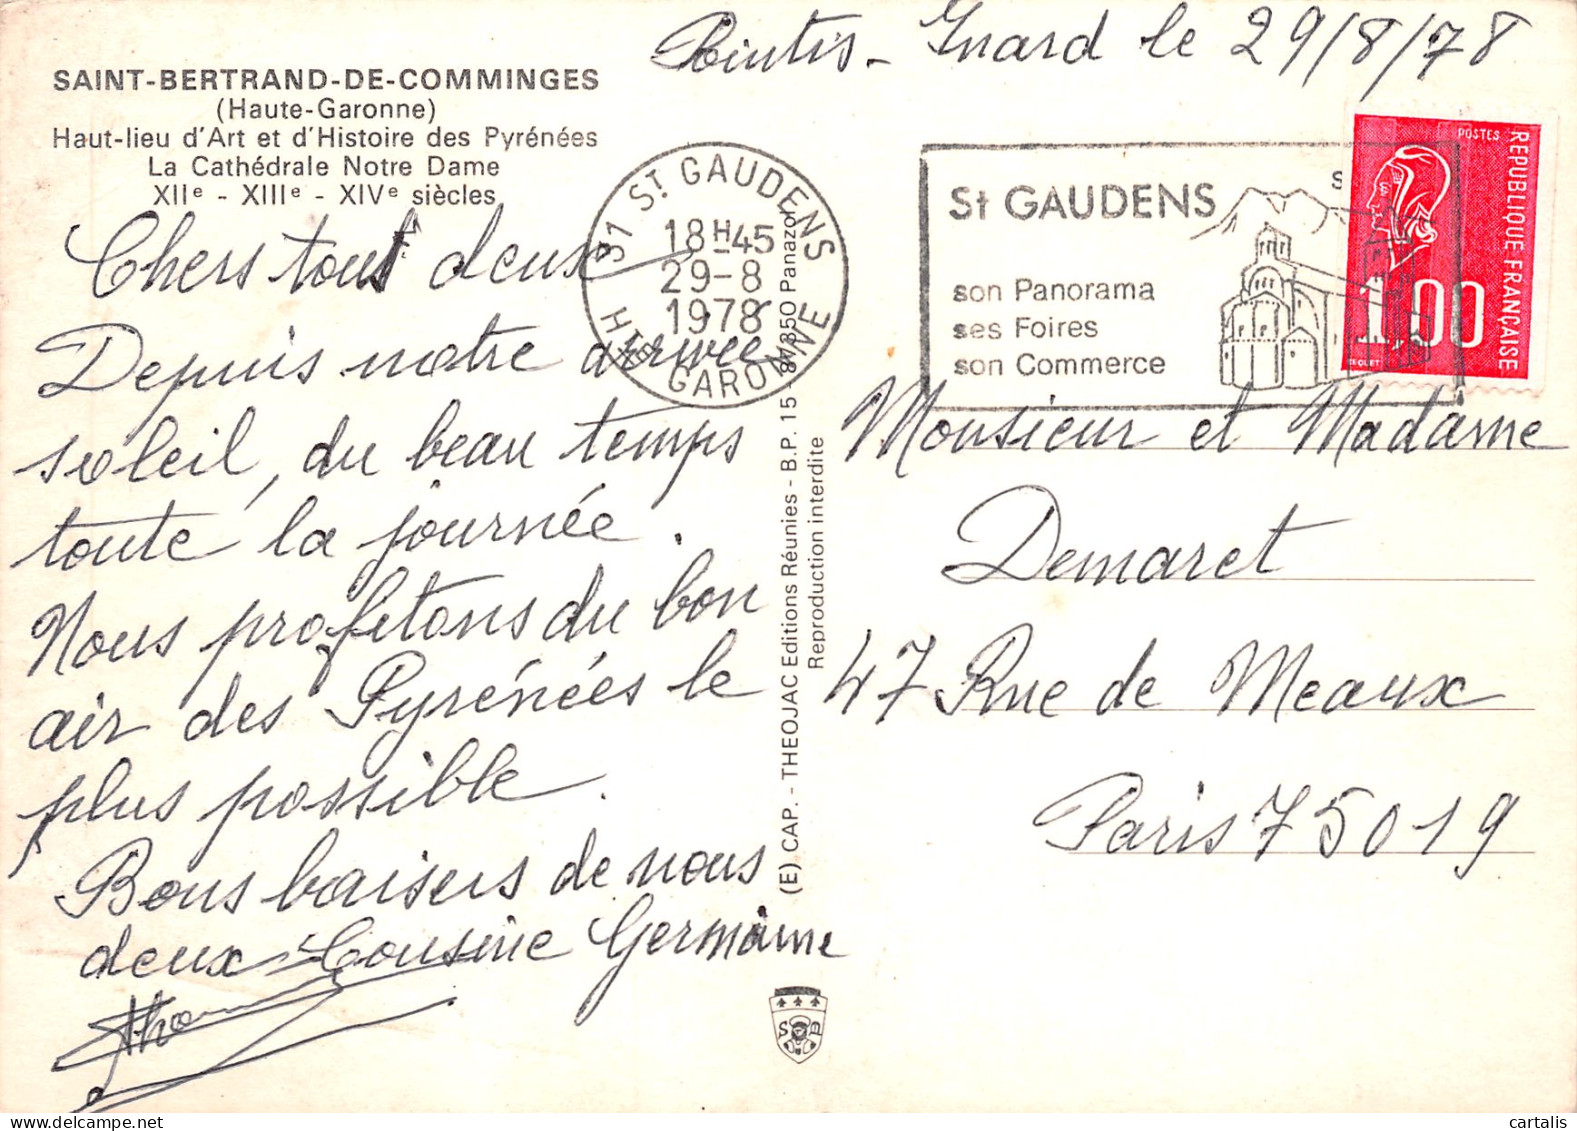 Pointis - Inard le 29/8/78
SAINT-BERTRAND-DE-COMMINGES
(Haute-Garonne)
Haut-lieu d'Art et d'Histoire des Pyrénées
La Cathédrale Notre Dame
XIIe - XIIIe - XIVe siècles
Chers tous deux
Depuis notre arrivée
soleil, du beau temps
toute la journée.
Nous profitons du bon
air des Pyrénées le
plus possible.
Bons baisers de nous
deux Cousine Germaine
31 St. GAUDENS
18H45
29-8
1978
HTE GARONNE
(E) CAP. - THEOJAC Editions Réunies - B.P. 15 - 87350 Panazol
Reproduction interdite
St GAUDENS
son Panorama
ses Foires
son Commerce
POSTES
REPUBLIQUE FRANÇAISE
1,00
Monsieur et Madame
Demaret
47 Rue de Meaux
Paris 75019
cartalis